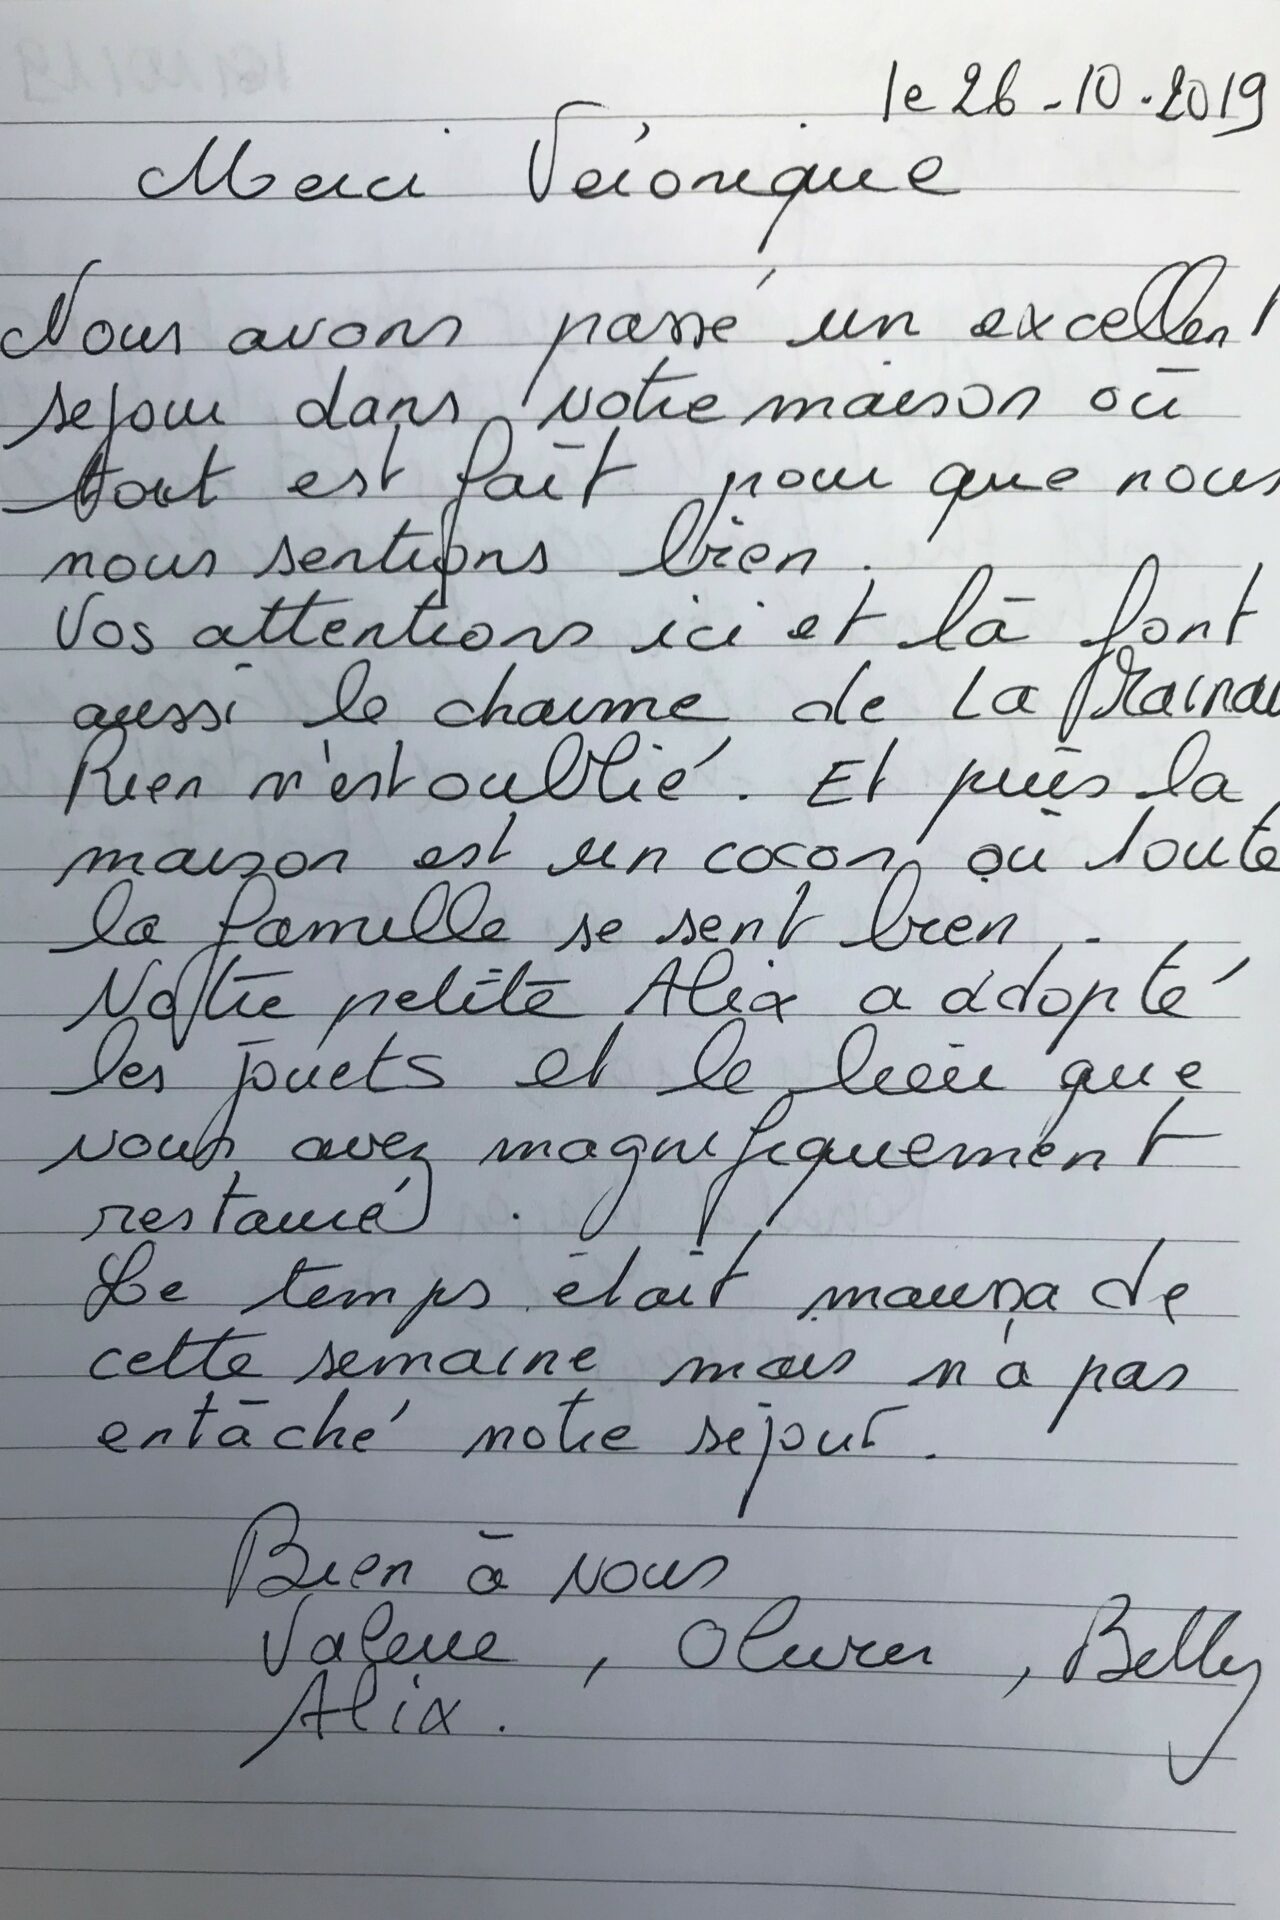 le 26-10.2019
Merci Véronique
Nous avons passé un excellent
sejour dans votre maison où
tout est fait pour que nous
nous sentions bien.
Vos attentions ici et là font
aussi le charme de La
Rien n'est oublié. Et puis la
maison est un cocon où toute
la famille se sent bien.
Notre petite Alix a adopté
les jouets et le lieu que
vous avez magnifiquement
restauré.
Le temps était maussade
cette semaine mais n'a pas
entâché notre séjour.
Bien à vous
Valérie, Olivier,
Alix.